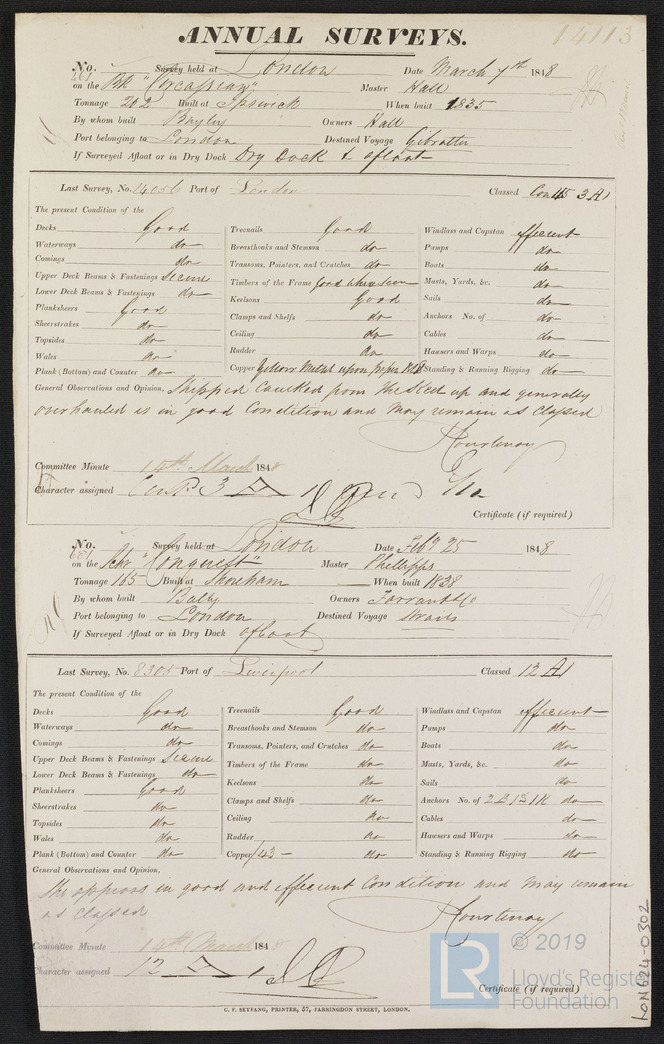 ANNUAL SURVEYS. 14113
No. 461 Survey held at London Date March 7th 1848
on the Bk "Circassian" Master Hall
Tonnage 202 Built at Ipswich When built 1835
By whom built Bayley Owners Hall
Port belonging to London Destined Voyage Gibralter
If Surveyed Afloat or in Dry Dock Dry Dock & afloat
Last Survey, No. 14056 Port of London Classed Con 45 3 A1
The present Condition of the
Decks Good Treenails Good Windlass and Capstan efficient
Waterways do Breasthooks and Stemson do Pumps do
Comings do Transoms, Pointers, and Crutches do Boats do
Upper Deck Beams & Fastenings Secure Timbers of the Frame Good where seen Masts, Yards, &c. do
Lower Deck Beams & Fastenings do Keelsons Good Sails do
Planksheers Good Clamps and Shelfs do Anchors No. of do
Sheerstrakes do Ceiling do Cables do
Topsides do Rudder do Hawsers and Warps do
Wales do Copper Yellow Metal upon paper Standing & Running Rigging do
Plank (Bottom) and Counter do
General Observations and Opinion, Stripped Caulked from the Keel up and generally
overhauled is in good Condition and may remain as classed
Courtenay
Committee Minute 14th March 1848
Character assigned Cont 3 A 1
Certificate (if required)
No. 681 Survey held at London Date Feby 25 1848
on the Schr "Conquest" Master Phillipps
Tonnage 165 Built at Shoreham When built 1838
By whom built Balley Owners Farrant & Co
Port belonging to London Destined Voyage Straits
If Surveyed Afloat or in Dry Dock afloat
Last Survey, No. 8305 Port of Liverpool Classed 12 A1
The present Condition of the
Decks Good Treenails Good Windlass and Capstan efficient
Waterways do Breasthooks and Stemson do Pumps do
Comings do Transoms, Pointers, and Crutches do Boats do
Upper Deck Beams & Fastenings Secure Timbers of the Frame do Masts, Yards, &c. do
Lower Deck Beams & Fastenings do Keelsons do Sails do
Planksheers Good Clamps and Shelfs do Anchors No. of 2 B 1 S 1 K do
Sheerstrakes do Ceiling do Cables do
Topsides do Rudder do Hawsers and Warps do
Wales do Copper /43 - do Standing & Running Rigging do
Plank (Bottom) and Counter do
General Observations and Opinion,
She appears in good and efficient Condition and may remain
as classed
Courtenay
Committee Minute 14th March 1848
Character assigned 12 A 1
Certificate (if required)
C. F. SEYFANG, PRINTER, 57, FARRINGDON STREET, LONDON.
LR © 2019
Lloyd's Register
Foundation
LON624-0302